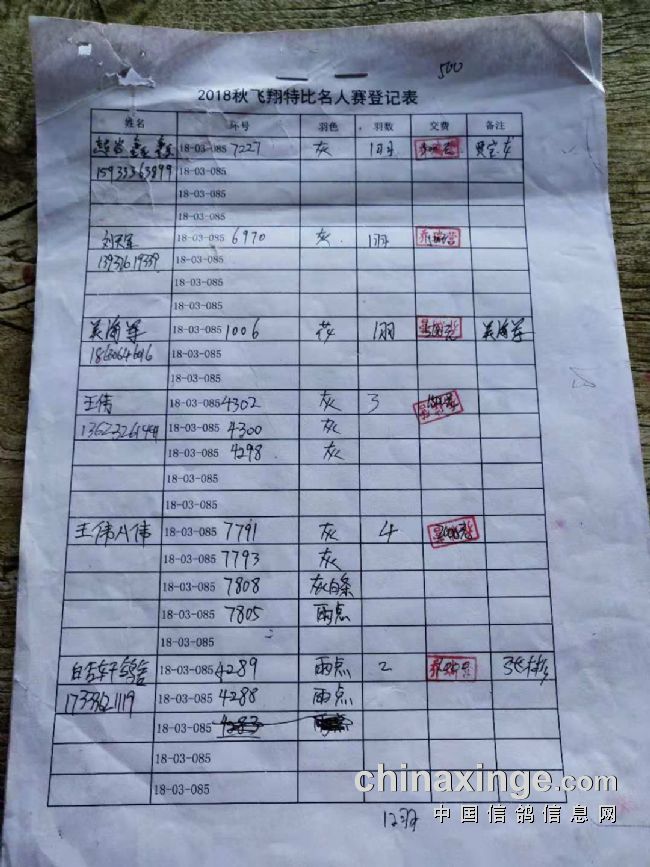 500
2018秋飞翔特比名人赛登记表
姓名 环号 羽色 羽数 交费 备注
18-03-085 7227 灰 1羽
15933363899 18-03-085
18-03-085
18-03-085
刘天军 18-03-085 6970 灰 1羽
18-03-085
18-03-085
18-03-085
吴海军 18-03-085 1006 花 1羽 吴海军
18-03-085
18-03-085
王伟 18-03-085 4302 灰 3
18-03-085 4300 灰
18-03-085 4298 灰
18-03-085
18-03-085
王伟A伟 18-03-085 7791 灰 4
18-03-085 7793 灰
18-03-085 7808 灰白条
18-03-085 7805 雨点
18-03-085
18-03-085 4289 雨点 2 张彬
17333621119 18-03-085 4288 雨点
18-03-085 4283 雨点
18-03-085
18-03-085
12羽
chinaxinge.com
中国信鸽信息网